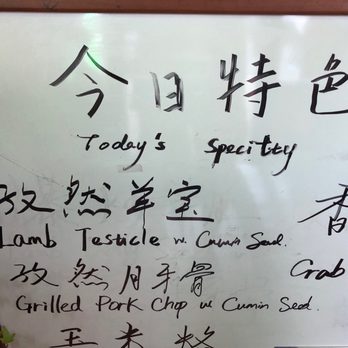 今日特色
Today's Specilty
孜然羊宝
Lamb Testicle w. Cumin Seed.
香
Crab
孜然月牙骨
Grilled Pork Chop w Cumin Seed.
玉米